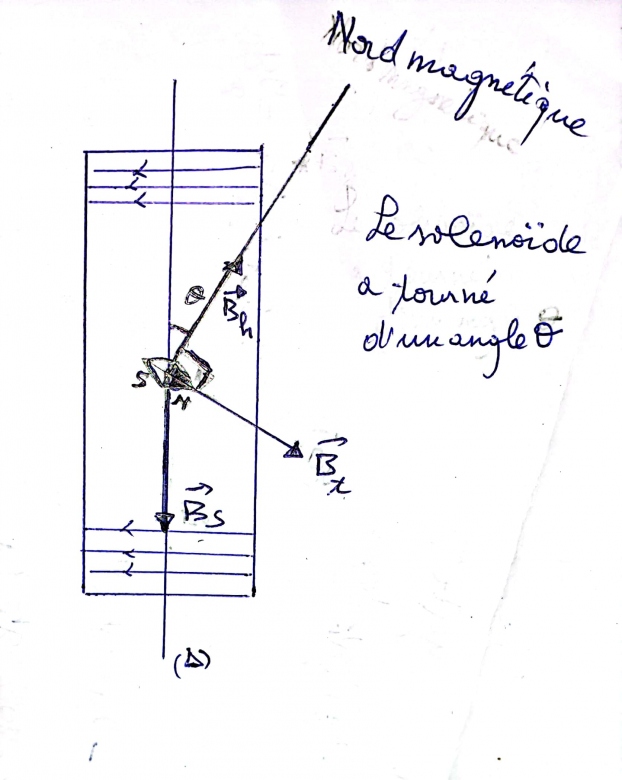 Nord magnétique
Le solenoïde
a tourné
d'un angle θ
θ
B⃗h
S
N
B⃗t
B⃗s
(Δ)